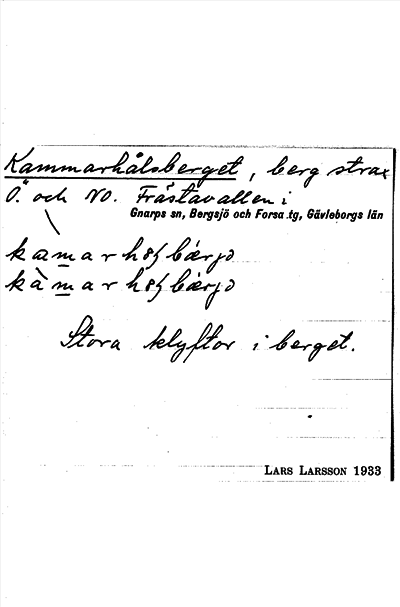 Kammarhålsberget, berg strax
Ö. och NO. Fråstavallen i
Gnarps sn, Bergsjö och Forsa tg, Gävleborgs län
Stora klyftor i berget.
LARS LARSSON 1933